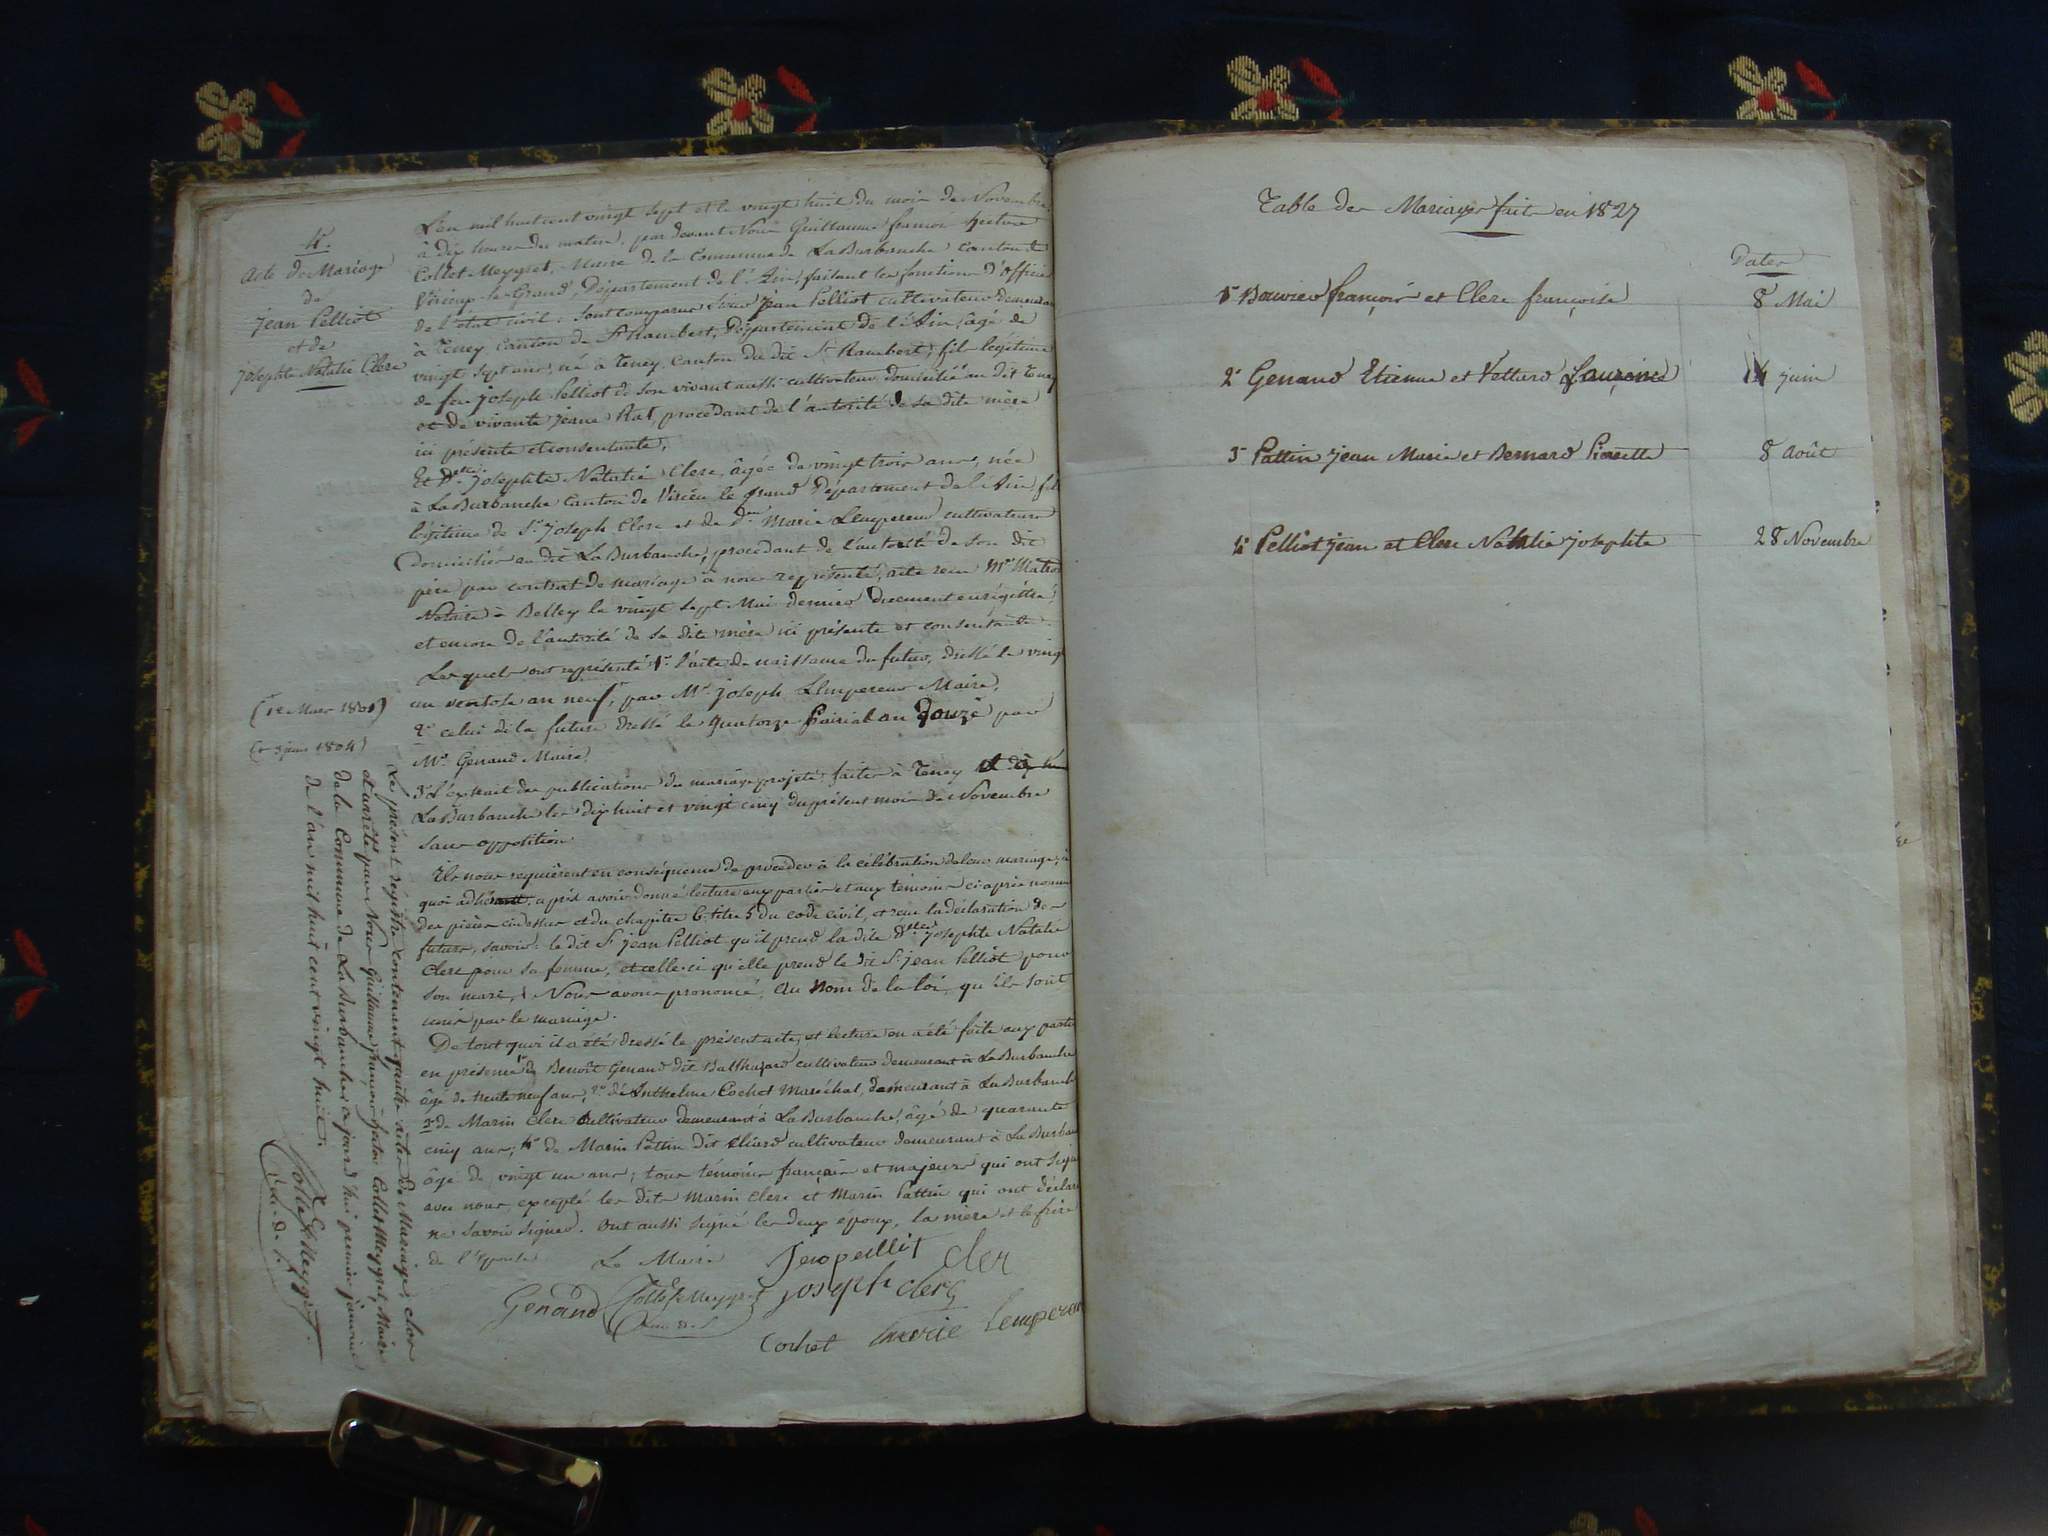 4.
Acte de Mariage
de
jean Pelliot
et de
josephte Natalie Clerc
L'an mil huit cent vingt sept et le vingt huit du mois de Novembre
à dix heures du matin, par devant Nous Guillaume françois hector
Collet-Meygret, Maire de la Commune de LaBurbanche canton de
Virieu-le-Grand, Département de l'Ain, faisant les fonctions d'officier
de l'état civil: sont comparus Sieur jean Pelliot cultivateur demeurant
à Teney canton de St Rambert, Département de l'Ain, âgé de
vingt sept ans, né à Teney canton du dit St Rambert, fils légitime
de feu joseph Pelliot de son vivant aussi cultivateur domicilié au dit Teney
et de vivante jeane Rat, procedant de l'autorité de sa dite mère
ici présente et consentante;
Et Delle josephte Natalie Clerc, âgée de vingt trois ans, née
à LaBurbanche Canton de Virieu le grand Département de l'Ain, fille
légitime de Sr joseph Clerc et de De Marie Lempereur cultivateurs
domiciliés au dit LaBurbanche, procedant de l'autorité de son dit
père par contrat de mariage à nous représenté, acte reçu Me
Notaire à Belley le vingt sept Mai dernier duement enrégistré,
et encore de l'autorité de sa dite mère ici présente et consentante.
Lesquels ont représenté 1° l'acte de naissance du futur, dressé le vingt
un ventose an neuf, par Mr joseph Lempereur Maire,
(12 Mars 1801)
2° celui de la future dressé le quatorze Prairial an douze par
(3 juin 1804)
Mr Genaud Maire
3° l'extrait des publications du mariage projeté faites à Teney et à
LaBurbanche les dix huit et vingt cinq du présent mois de Novembre
sans opposition
Ils nous requièrent en conséquence de procéder à la célébration de leur mariage; à
quoi adhérant, après avoir donné lecture aux parties et aux témoins ci-après nommés
des pièces ci dessus et du chapitre 6 titre 5 du code civil, et reçu la déclaration des
futurs, savoir: le dit Sr jean Pelliot qu'il prend la dite Delle josephte Natalie
Clerc pour sa femme, et celle-ci qu'elle prend le dit Sr jean Pelliot pour
son mari, Nous avons prononcé, au Nom de la loi, qu'ils sont
unis par le mariage.
De tout quoi il a été dressé le présent acte, et lecture en a été faite aux parties
en présence 1° de Benoît Genaud dit Balthazard cultivateur demeurant à LaBurbanche
âgé de trente neuf ans, 2° de Anthelme Cochet Maréchal, demeurant à LaBurbanche
3° de Marin Clerc Cultivateur demeurant à LaBurbanche, âgé de quarante
cinq ans; 4° de Marin Pattin dit cultivateur demeurant à LaBurbanche
âgé de vingt un ans; tous témoins français et majeurs qui ont signé
avec nous, excepté les dits Marin Clerc et Marin Pattin qui ont déclaré
ne savoir signer. Ont aussi signé les deux époux, la mère et le frère
de l'Epouse. Le Maire
Jean pelliot
Cler
Genand
Collet Meygret
joseph clerc
Cochet
marie Lempereur
Le présent régistre contenant quatre actes de Mariage, clos
et arrêté par Nous Guillaume françois hector Collet Meygret, Maire
de la Commune de LaBurbanche aujourd'hui premier janvier
de l'an mil huit cent vingt huit.
Collet Meygret
Table des Mariages faits en 1827
Dates
1° Bouvier françois et Clerc françoise 8 Mai
2° Genaud Etienne et Vettard 14 juin
3° Pattin jean Marie et Bernard Pierrette 8 Août
4° Pelliot jean et Clerc Natalie josephte 28 Novembre